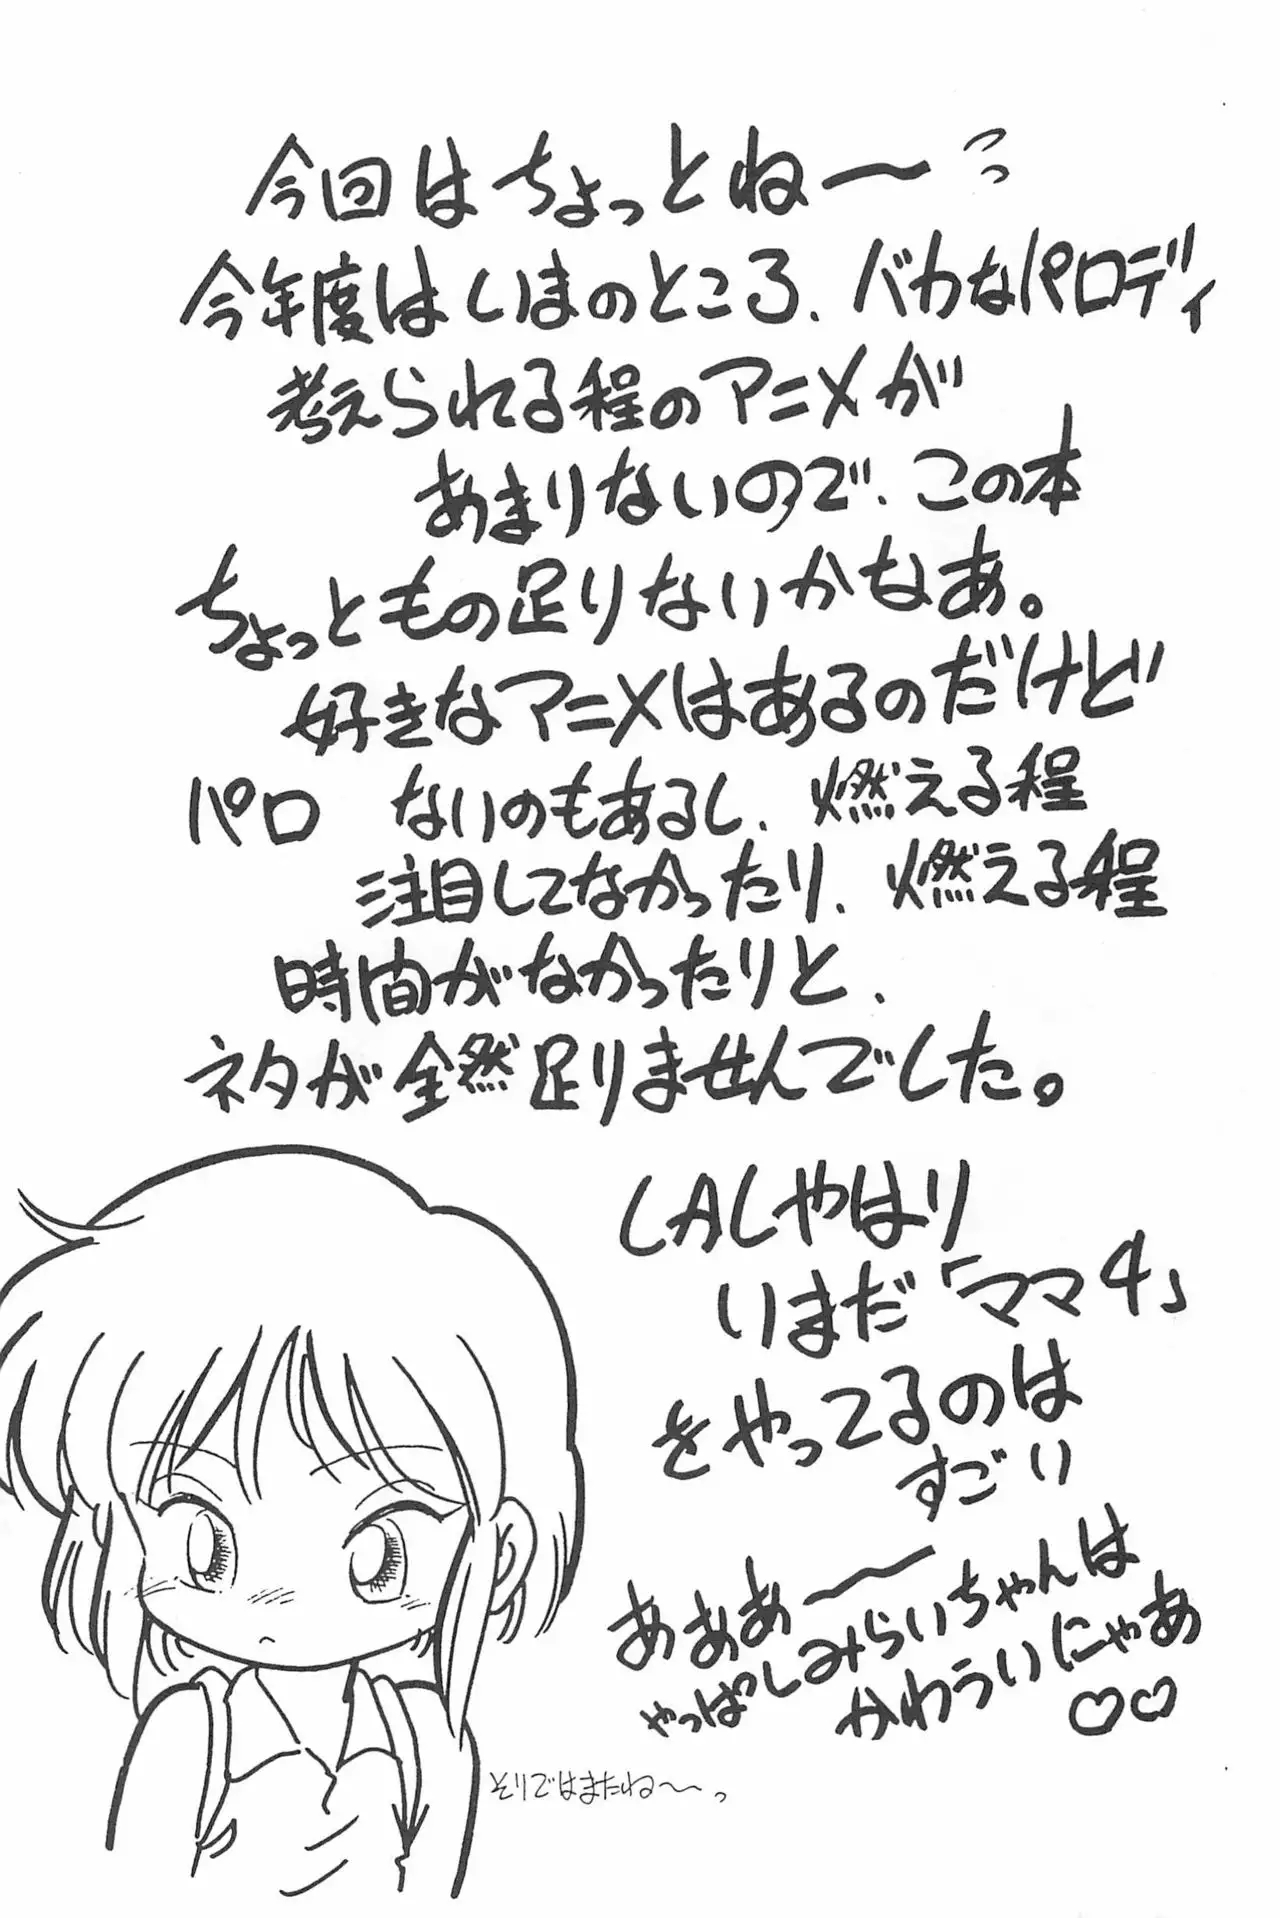 今回はちょっとね〜っっ
今年度はいまのところ、バカなパロディ
考えられる程のアニメが
あまりないので、この本
ちょっともの足りないかなあ。
好きなアニメはあるのだけど
パロ ないのもあるし、燃える程
注目してなかったり、燃える程
時間がなかったりと、
ネタが全然足りませんでした。
しAしやはり
いまだ「ママ4」
をやってるのは
すごい
あああ〜
やっぱしみらいちゃんは
かわういにゃあ
♡♡
そりではまたね〜っ